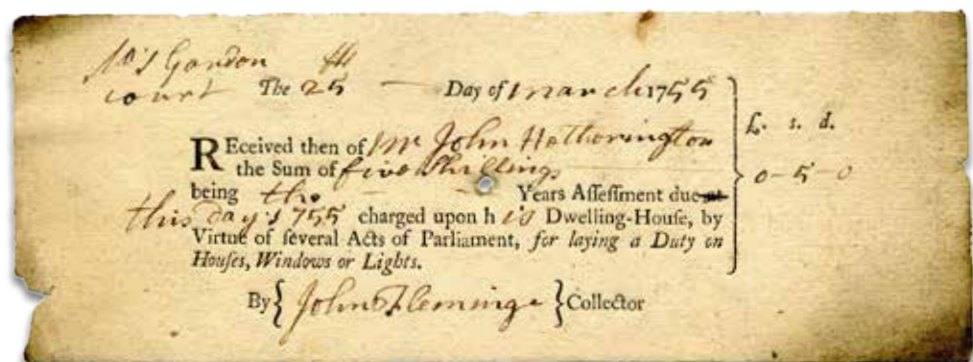 No 5 Gordon
court The 25th Day of march 1755
£. s. d.
REceived then of Mr John Hetherington
the Sum of five Shillings
0-5-0
being the Years Aſſeſſment due at
this day 1755 charged upon h is Dwelling-Houſe, by
Virtue of ſeveral Acts of Parliament, for laying a Duty on
Houſes, Windows or Lights.
By { John Fleminge } Collector